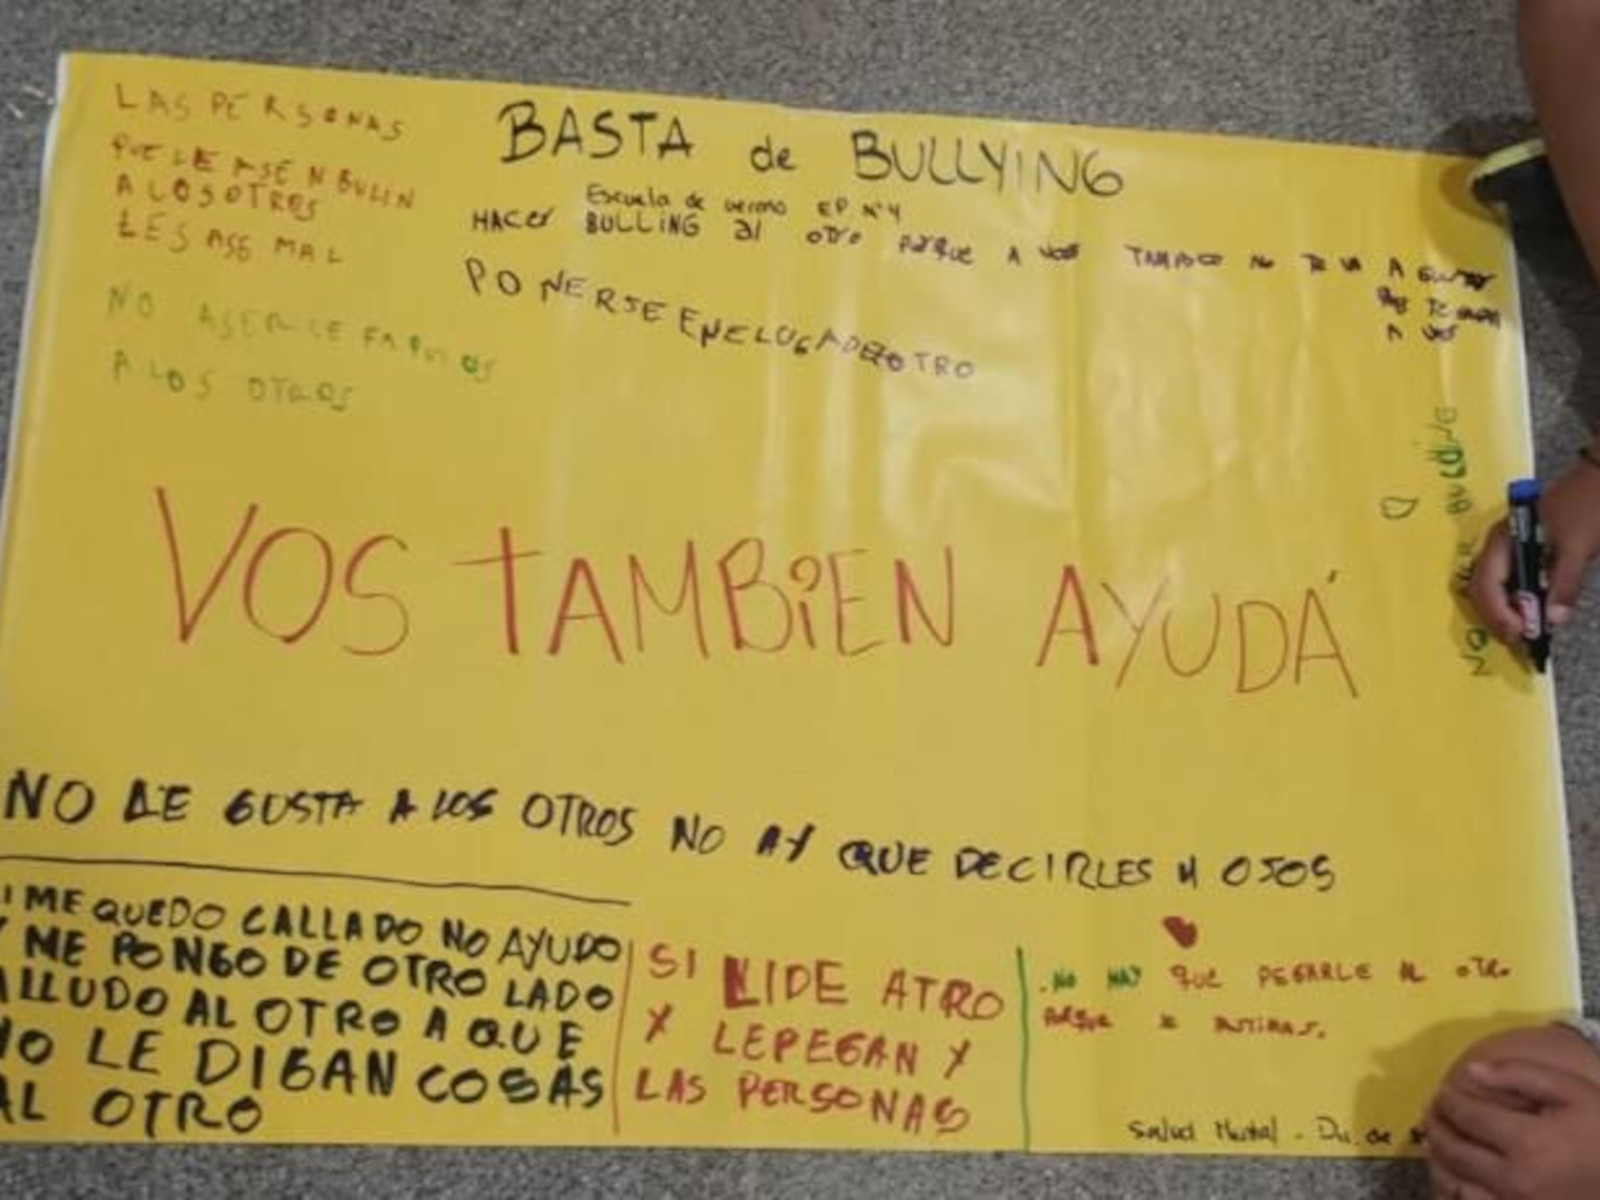 BASTA de BULLYING
Escuela de verano EP N°4
HACER BULLING al otro porque A vos TAMPOCO No TE VA A GUSTAR
A vos
PONERSE EN EL LUGA DEL OTRO
LAS PERSONAS
QUE LE ASEN BULIN
A LOS OTROS
LES ASE MAL
NO ASERLE
A LOS OTROS
NO BULLINE
VOS TAMBIEN AYUDÁ
NO LE GUSTA A LOS OTROS NO AY QUE DECIRLES
I ME QUEDO CALLADO NO AYUDO
Y ME PONGO DE OTRO LADO
ALLUDO AL OTRO A QUE
NO LE DIGAN COSAS
AL OTRO
SI LIDE ATRO
X LEPEGAN Y
LAS PERSONAS
. NO HAY QUE PEGARLE AL OTRO
PORQUE LE LASTIMAS.
Salud Mental - Dir. de